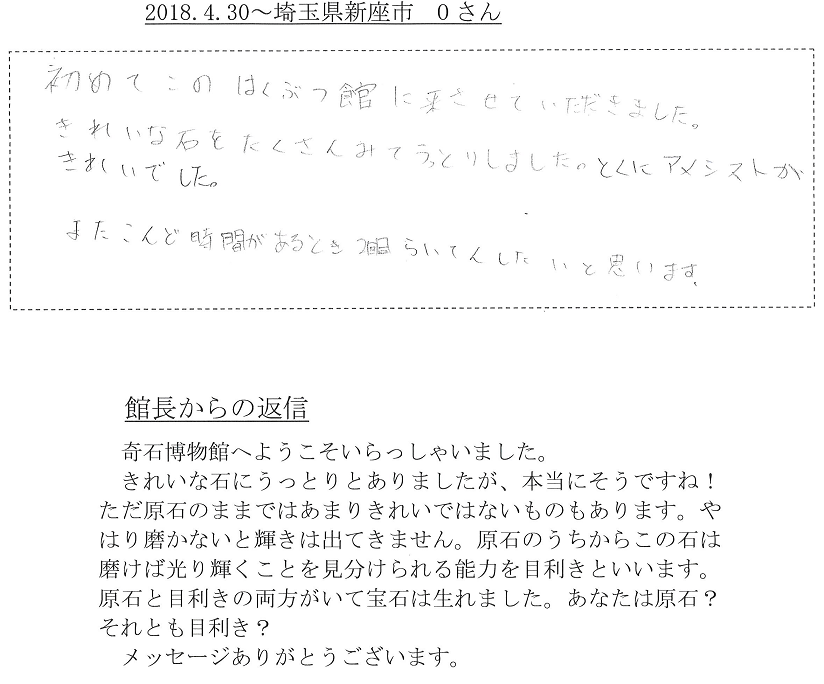 2018.4.30～埼玉県新座市　Oさん
初めてこのはくぶつ館に来させていただきました。
きれいな石をたくさんみてうっとりしました。とくにアメシストが
きれいでした。
またこんど時間があるとき らいてんしたいと思います。
館長からの返信
奇石博物館へようこそいらっしゃいました。
きれいな石にうっとりとありましたが、本当にそうですね！
ただ原石のままではあまりきれいではないものもあります。や
はり磨かないと輝きは出てきません。原石のうちからこの石は
磨けば光り輝くことを見分けられる能力を目利きといいます。
原石と目利きの両方がいて宝石は生れました。あなたは原石？
それとも目利き？
メッセージありがとうございます。